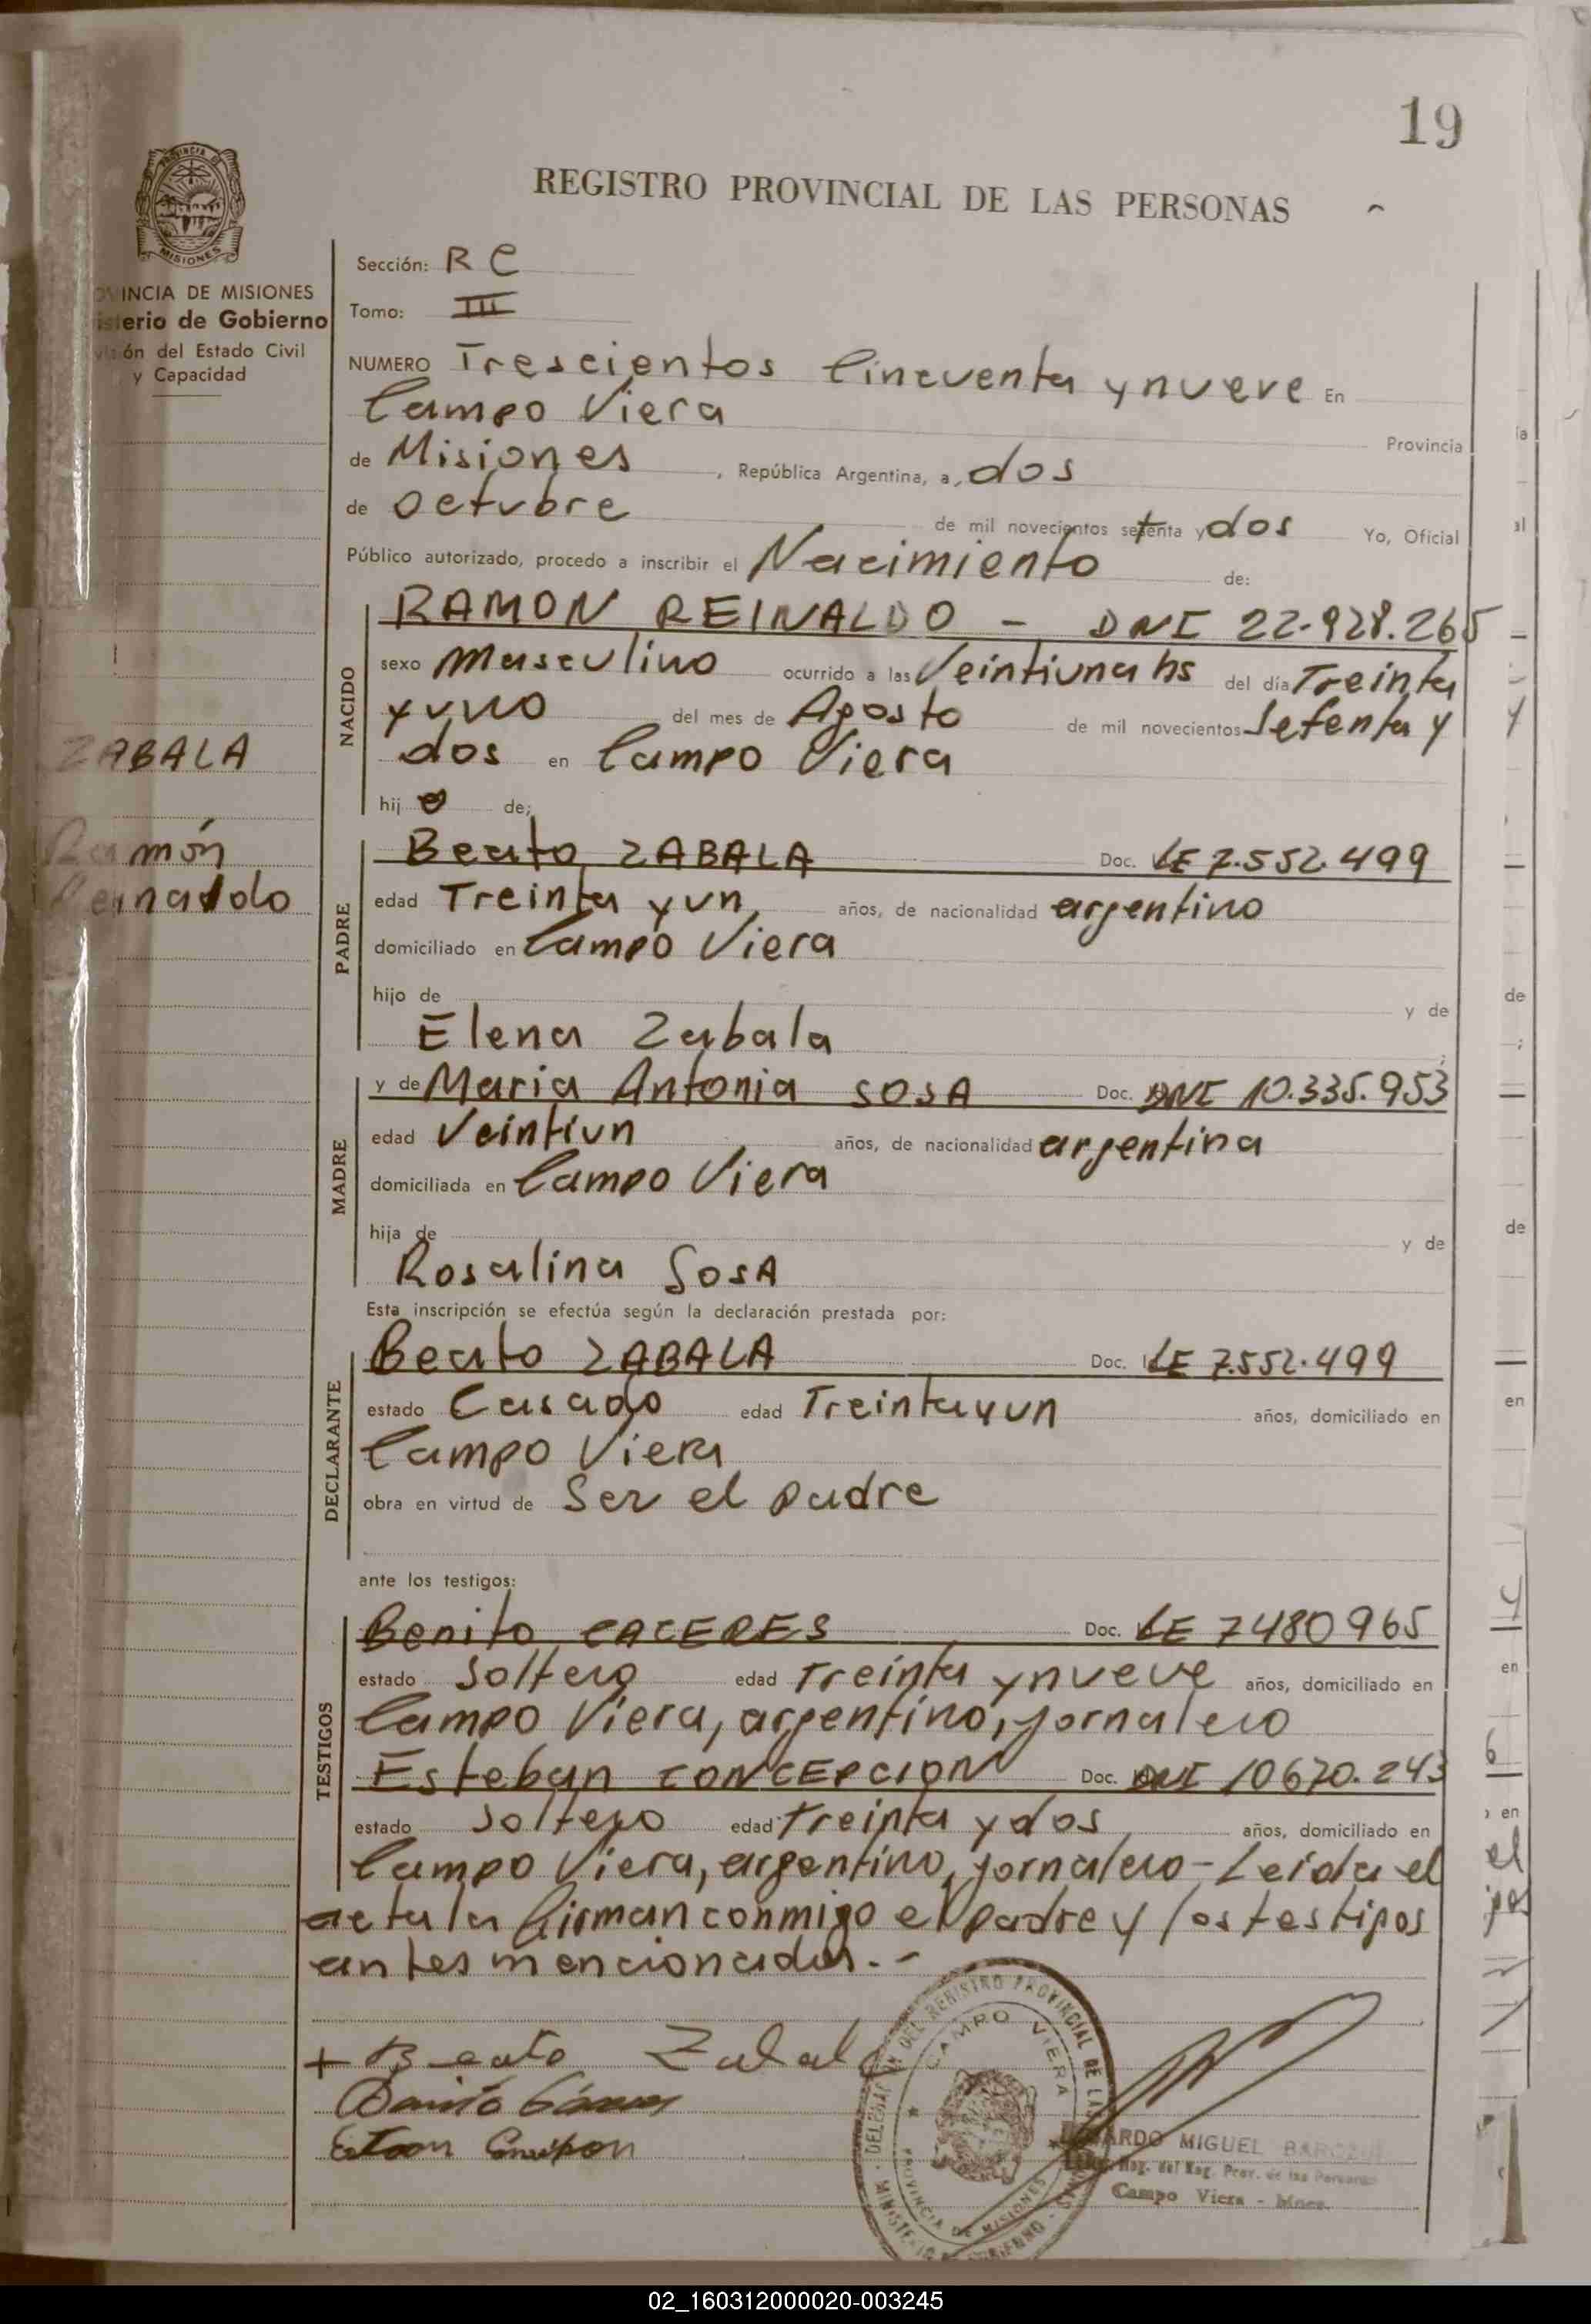 19
REGISTRO PROVINCIAL DE LAS PERSONAS
PROVINCIA DE
MISIONES
VINCIA DE MISIONES
sterio de Gobierno
ón del Estado Civil
y Capacidad
ZABALA
Ramón
Reinaldo
Sección: R C
Tomo: III
NUMERO Trescientos Cincuenta y nueve En
Campo Viera Provincia
de Misiones, República Argentina, a, dos
de octubre de mil novecientos setenta y dos Yo, Oficial
Público autorizado, procedo a inscribir el Nacimiento de:
NACIDO
RAMON REINALDO - DNI 22.928.265
sexo masculino ocurrido a las Veintiuna hs del día Treinta
y uno del mes de Agosto de mil novecientos Setenta y
dos en Campo Viera
hij o de;
PADRE
Beato ZABALA Doc. LE 7.552.499
edad Treinta y un años, de nacionalidad argentino
domiciliado en Campo Viera
hijo de y de
Elena Zabala ;
MADRE
y de Maria Antonia SOSA Doc. DNI 10.335.953
edad Veintiun años, de nacionalidad argentina
domiciliada en Campo Viera
hija de y de
Rosalina SosA
Esta inscripción se efectúa según la declaración prestada por:
DECLARANTE
Beato ZABALA Doc. LE 7.552.499
estado Casado edad Treinta y un años, domiciliado en
Campo Viera
obra en virtud de Ser el padre
ante los testigos:
TESTIGOS
Benito CACERES Doc. LE 7480965
estado Soltero edad Treinta y nueve años, domiciliado en
Campo Viera, argentino, jornalero
Esteban CONCEPCION Doc. DNI 10670.243
estado Soltero edad Treinta y dos años, domiciliado en
Campo Viera, argentino, jornalero - Leida el
acta la firman conmigo el padre y los testigos
antes mencionados.-
+ Beato Zabala
DEL REGISTRO PROVINCIAL DE LAS
CAMPO VIERA
PROVINCIA DE MISIONES
MIGUEL
del Reg. Prov. de las Personas
Campo Viera - Mnes.
02_160312000020-003245